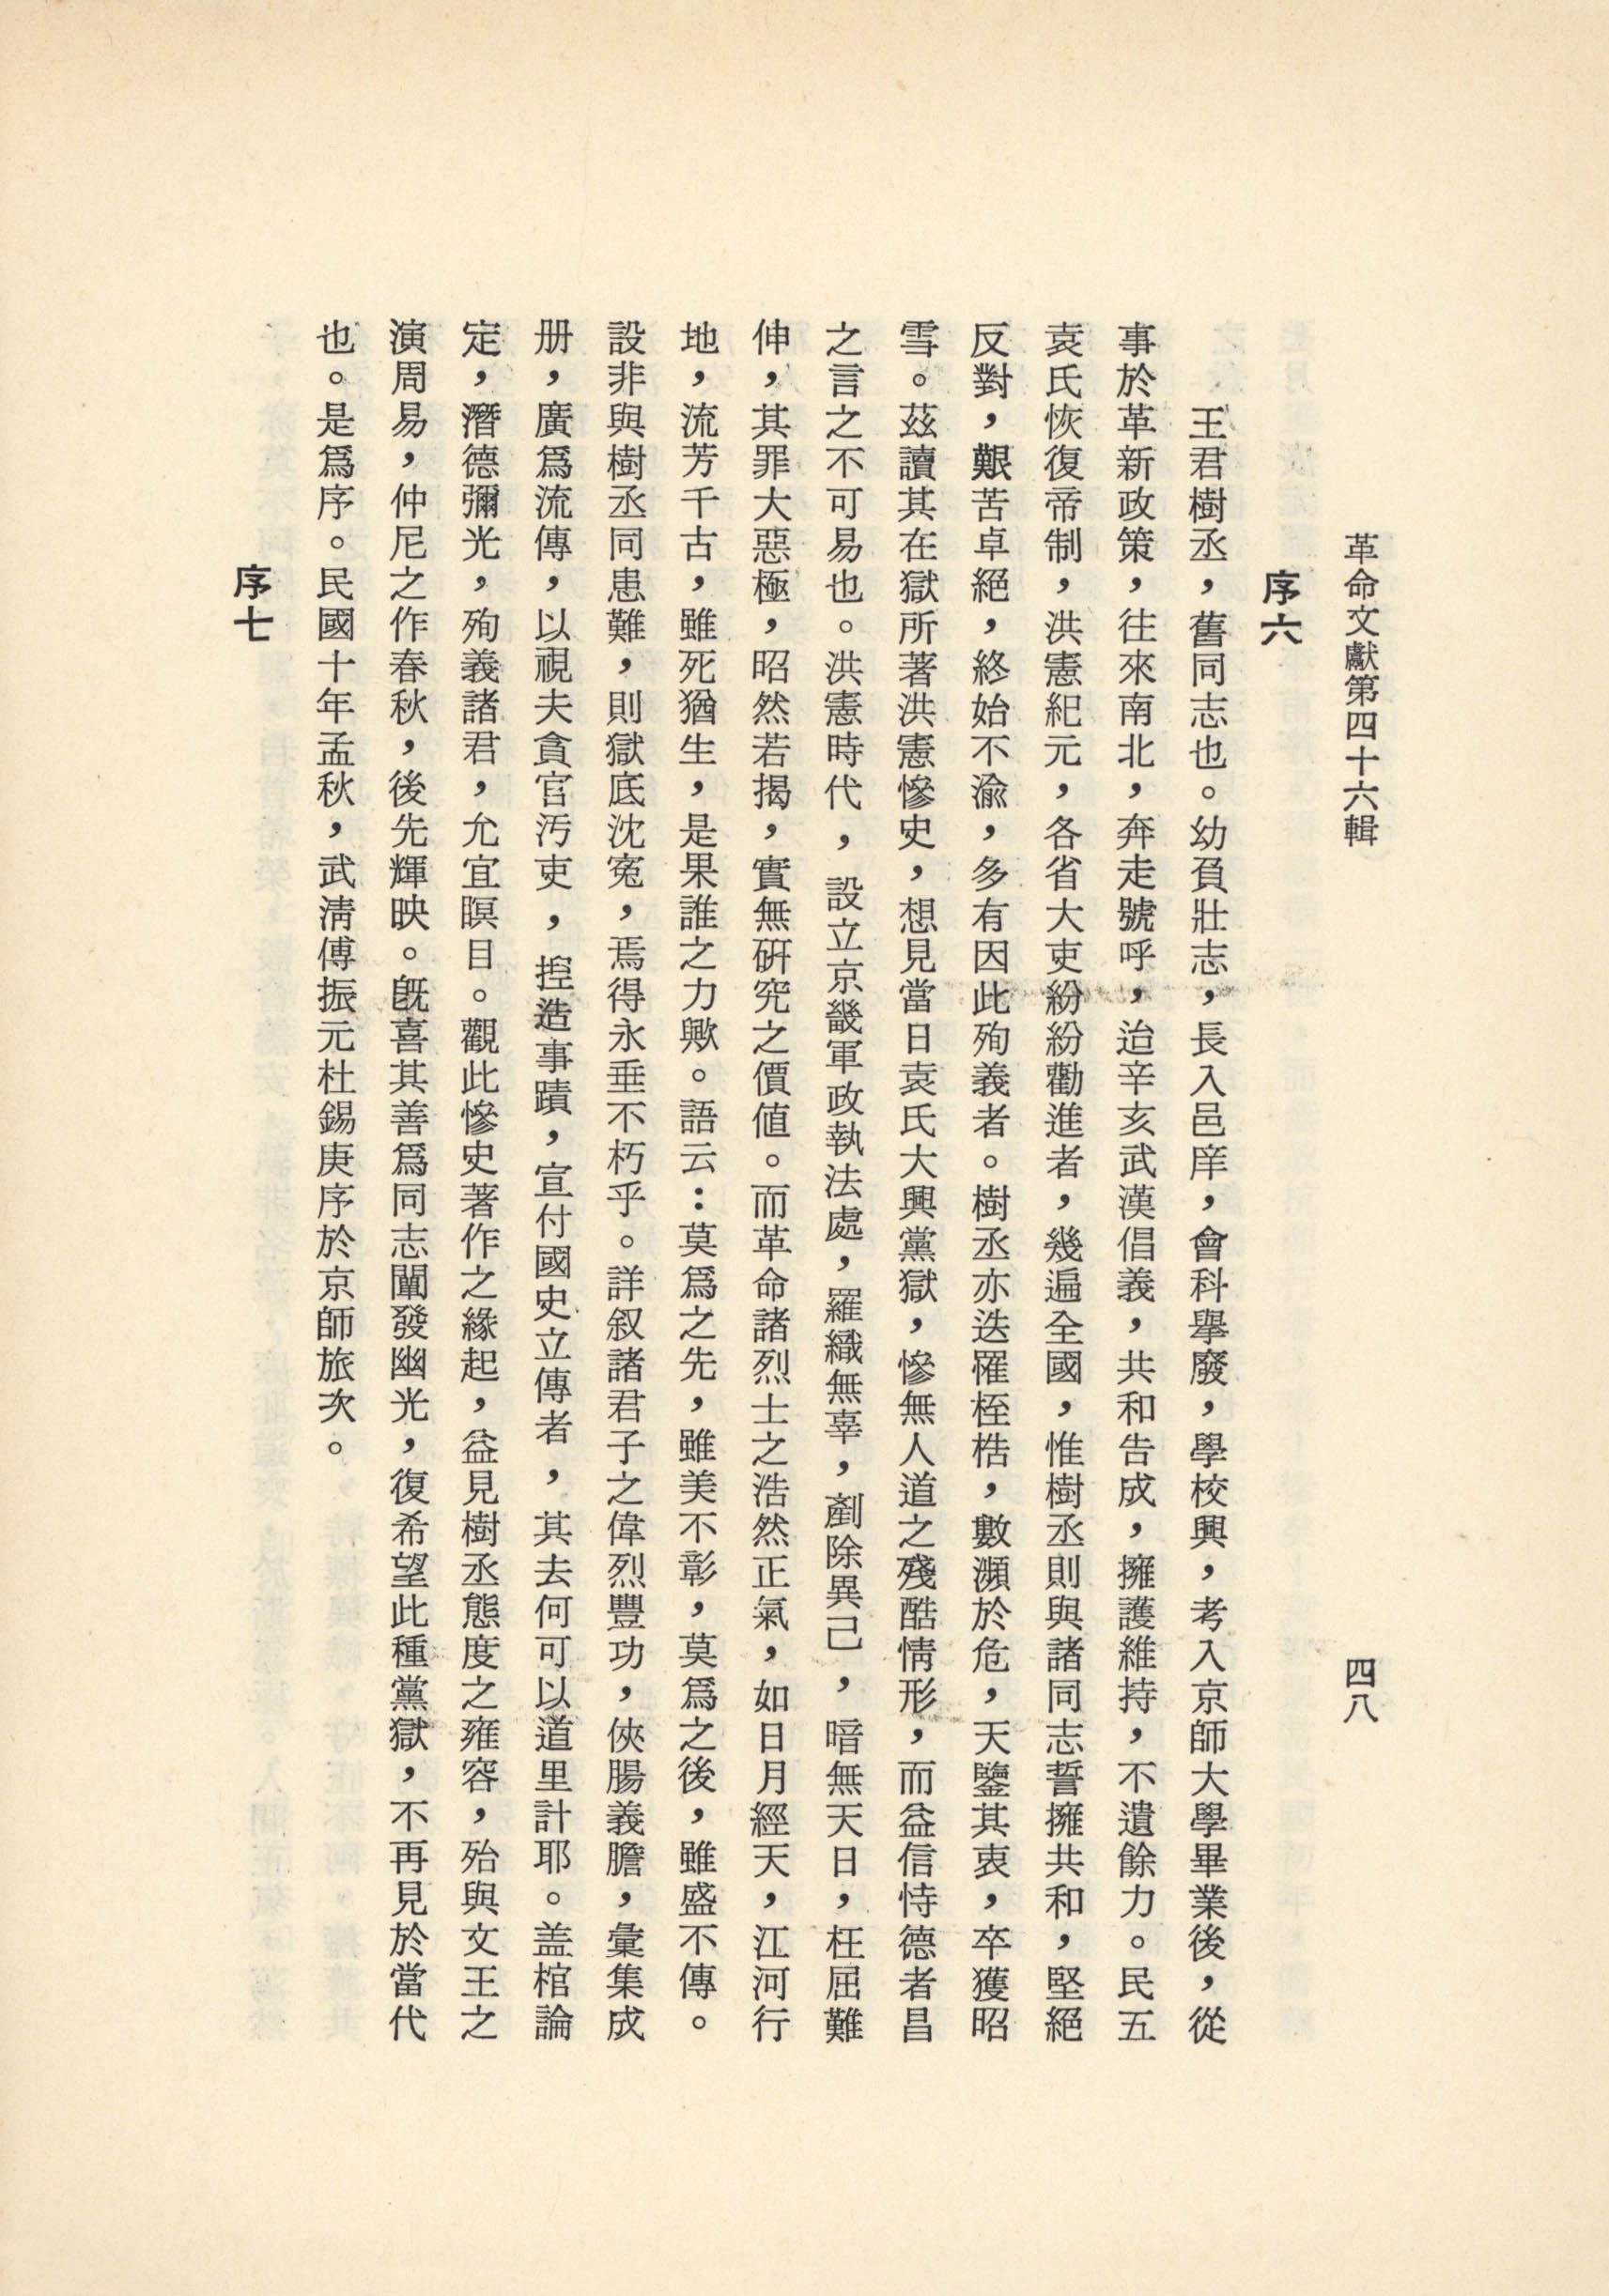 革命文獻第四十六輯
四八
序六
王君樹丞，舊同志也。幼負壯志，長入邑庠，會科擧廢，學校興，考入京師大學畢業後，從
事於革新政策，往來南北，奔走號呼，迨辛亥武漢倡義，共和告成，擁護維持，不遺餘力。民五
袁氏恢復帝制，洪憲紀元，各省大吏紛紛勸進者，幾遍全國，惟樹丞則與諸同志誓擁共和，堅絕
反對，艱苦卓絕，終始不渝，多有因此殉義者。樹丞亦迭罹桎梏，數瀕於危，天鑒其衷，卒獲昭
雪。茲讀其在獄所著洪憲慘史，想見當日袁氏大興黨獄，慘無人道之殘酷情形，而益信恃德者昌
之言之不可易也。洪憲時代，設立京畿軍政執法處，羅織無辜，剷除異己，暗無天日，枉屈難
伸，其罪大惡極，昭然若揭，實無研究之價値。而革命諸烈士之浩然正氣，如日月經天，江河行
地，流芳千古，雖死猶生，是果誰之力歟。語云：莫爲之先，雖美不彰，莫爲之後，雖盛不傳。
設非與樹丞同患難，則獄底沈寃，焉得永垂不朽乎。詳叙諸君子之偉烈豐功，俠腸義膽，彙集成
册，廣爲流傳，以視夫貪官汚吏，揑造事蹟，宣付國史立傳者，其去何可以道里計耶。盖棺論
定，潛德彌光，殉義諸君，允宜瞑目。觀此慘史著作之緣起，益見樹丞態度之雍容，殆與文王之
演周易，仲尼之作春秋，後先輝映。旣喜其善爲同志闡發幽光，復希望此種黨獄，不再見於當代
也。是爲序。民國十年孟秋，武淸傅振元杜錫庚序於京師旅次。
序七